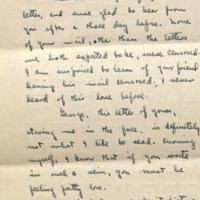 letter, and am glad to hear from
you after a three day lapse. None
of your mail, other than the letters
we both expected to be, were censored.
I am surprised to learn of your friend
having his mail censored, I never
heard of this here before.
George, this letter of yours,
staring me in the face, is definitely
not what I like to read. Knowing
myself, I know that if you write
in such a vein, you must be
feeling pretty low.